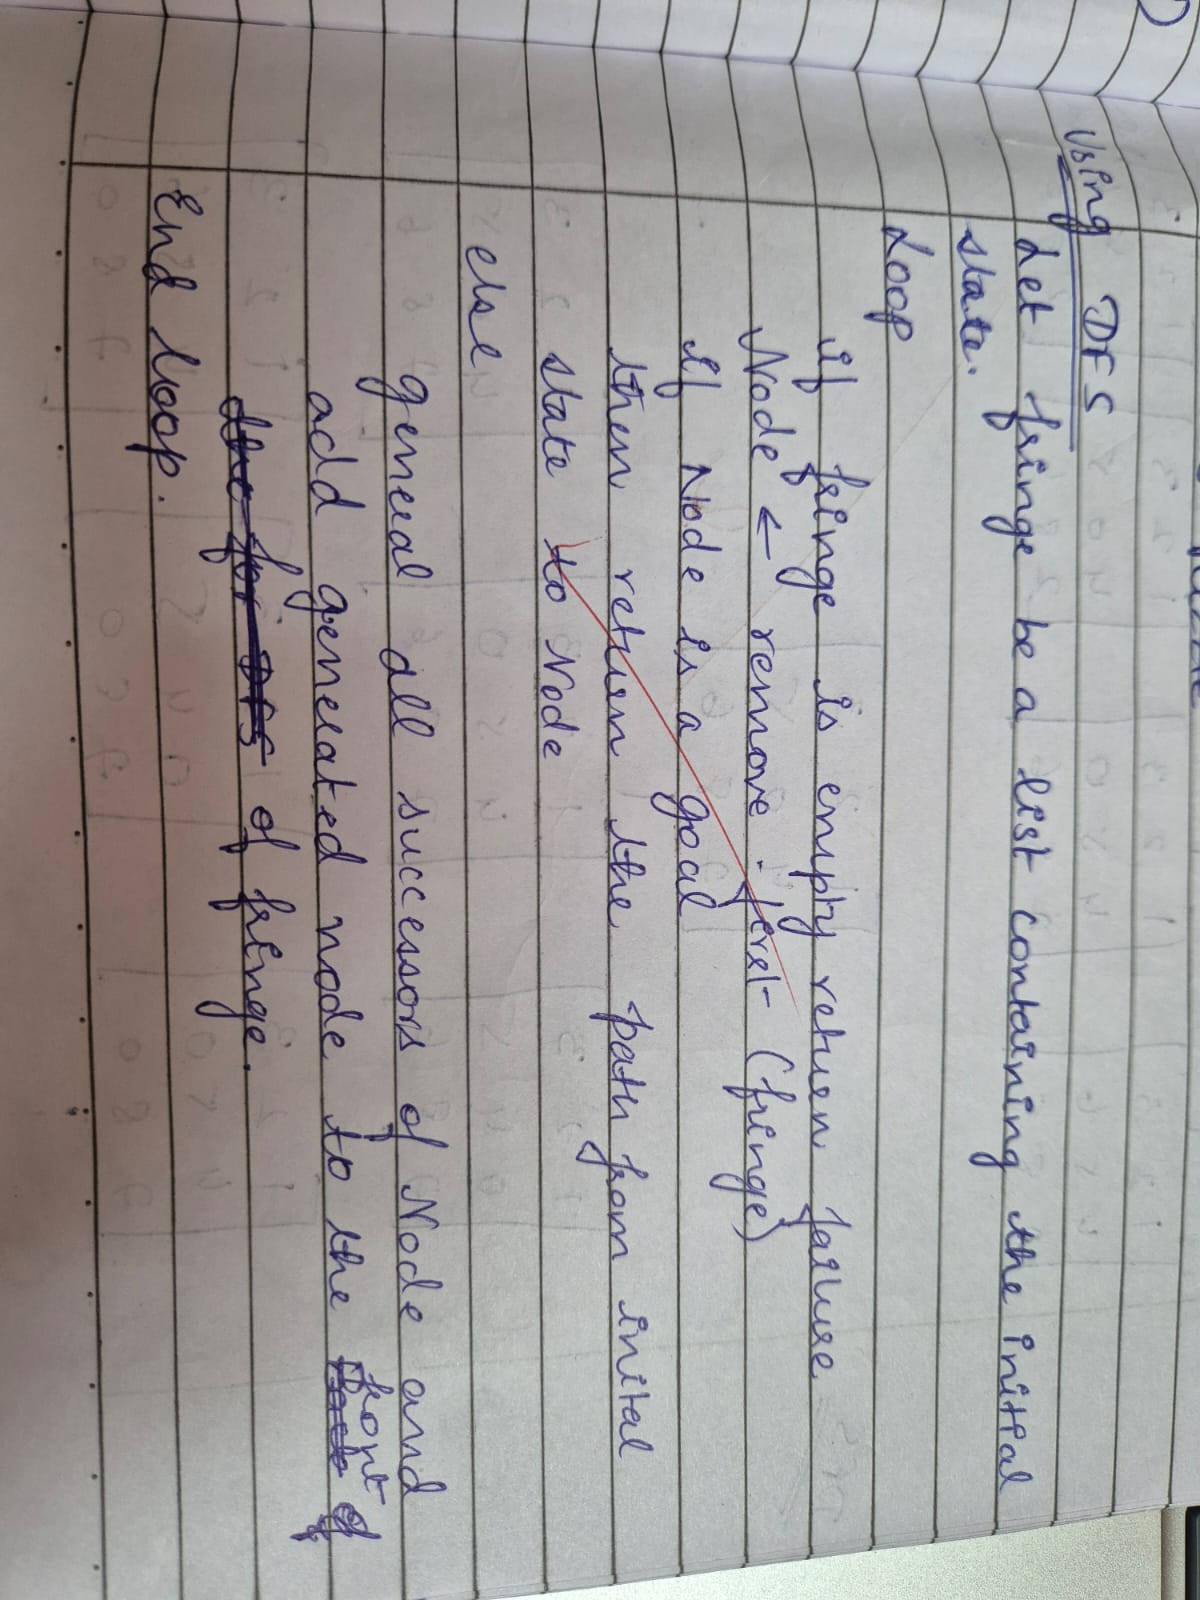 Using DFS
Let fringe be a list containing the initial
state.
Loop
if fringe is empty return failure
Node ← remove - first (fringe)
if Node is a goal
then return the path from inital
state to Node
else
general all successors of Node and
add generated node to the front of
of fringe.
End loop.